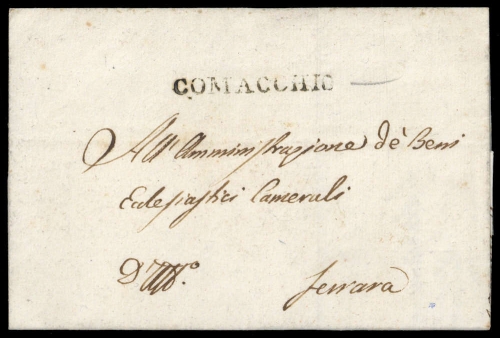 COMACCHIO
All' Amministrazione de' Beni
Eclesiastici Camerali
Ferrara